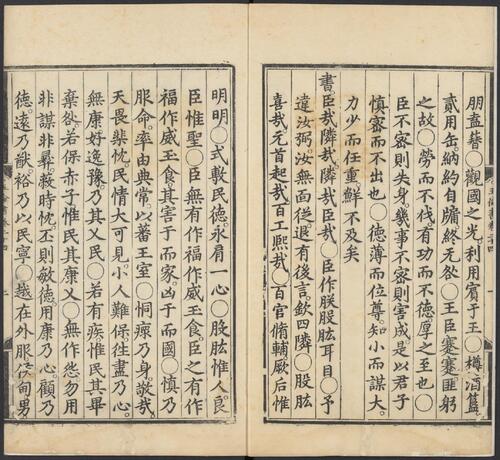 朋盍簪○觀國之光利用賓于王○樽酒簋
貳用缶納約自牖終无咎○王臣蹇蹇匪躬
之故○勞而不伐有功而不德厚之至也○
臣不密則失身幾事不密則害成是以君子
慎密而不出也○德薄而位尊知小而謀大
力少而任重鮮不及矣
書臣哉隣哉隣哉臣哉○臣作朕股肱耳目○予
違汝弼汝無面從退有後言欽四隣○股肱
喜哉元首起哉百工熙哉○百官脩輔厥后惟
明明○式敷民德永肩一心○股肱惟人良
臣惟聖○臣無有作福作威玉食臣之有作
福作威玉食其害于而家凶于而國○慎乃
服命率由典常以蕃王室○恫瘝乃身敬哉
天畏棐忱民情大可見小人難保往盡乃心
無康好逸豫乃其乂民○若有疾惟民其畢
棄咎若保赤子惟民其康乂○無作怨勿用
非謀非彝蔽時忱丕則敏德用康乃心顧乃
德遠乃猷裕乃以民寧○越在外服侯甸男